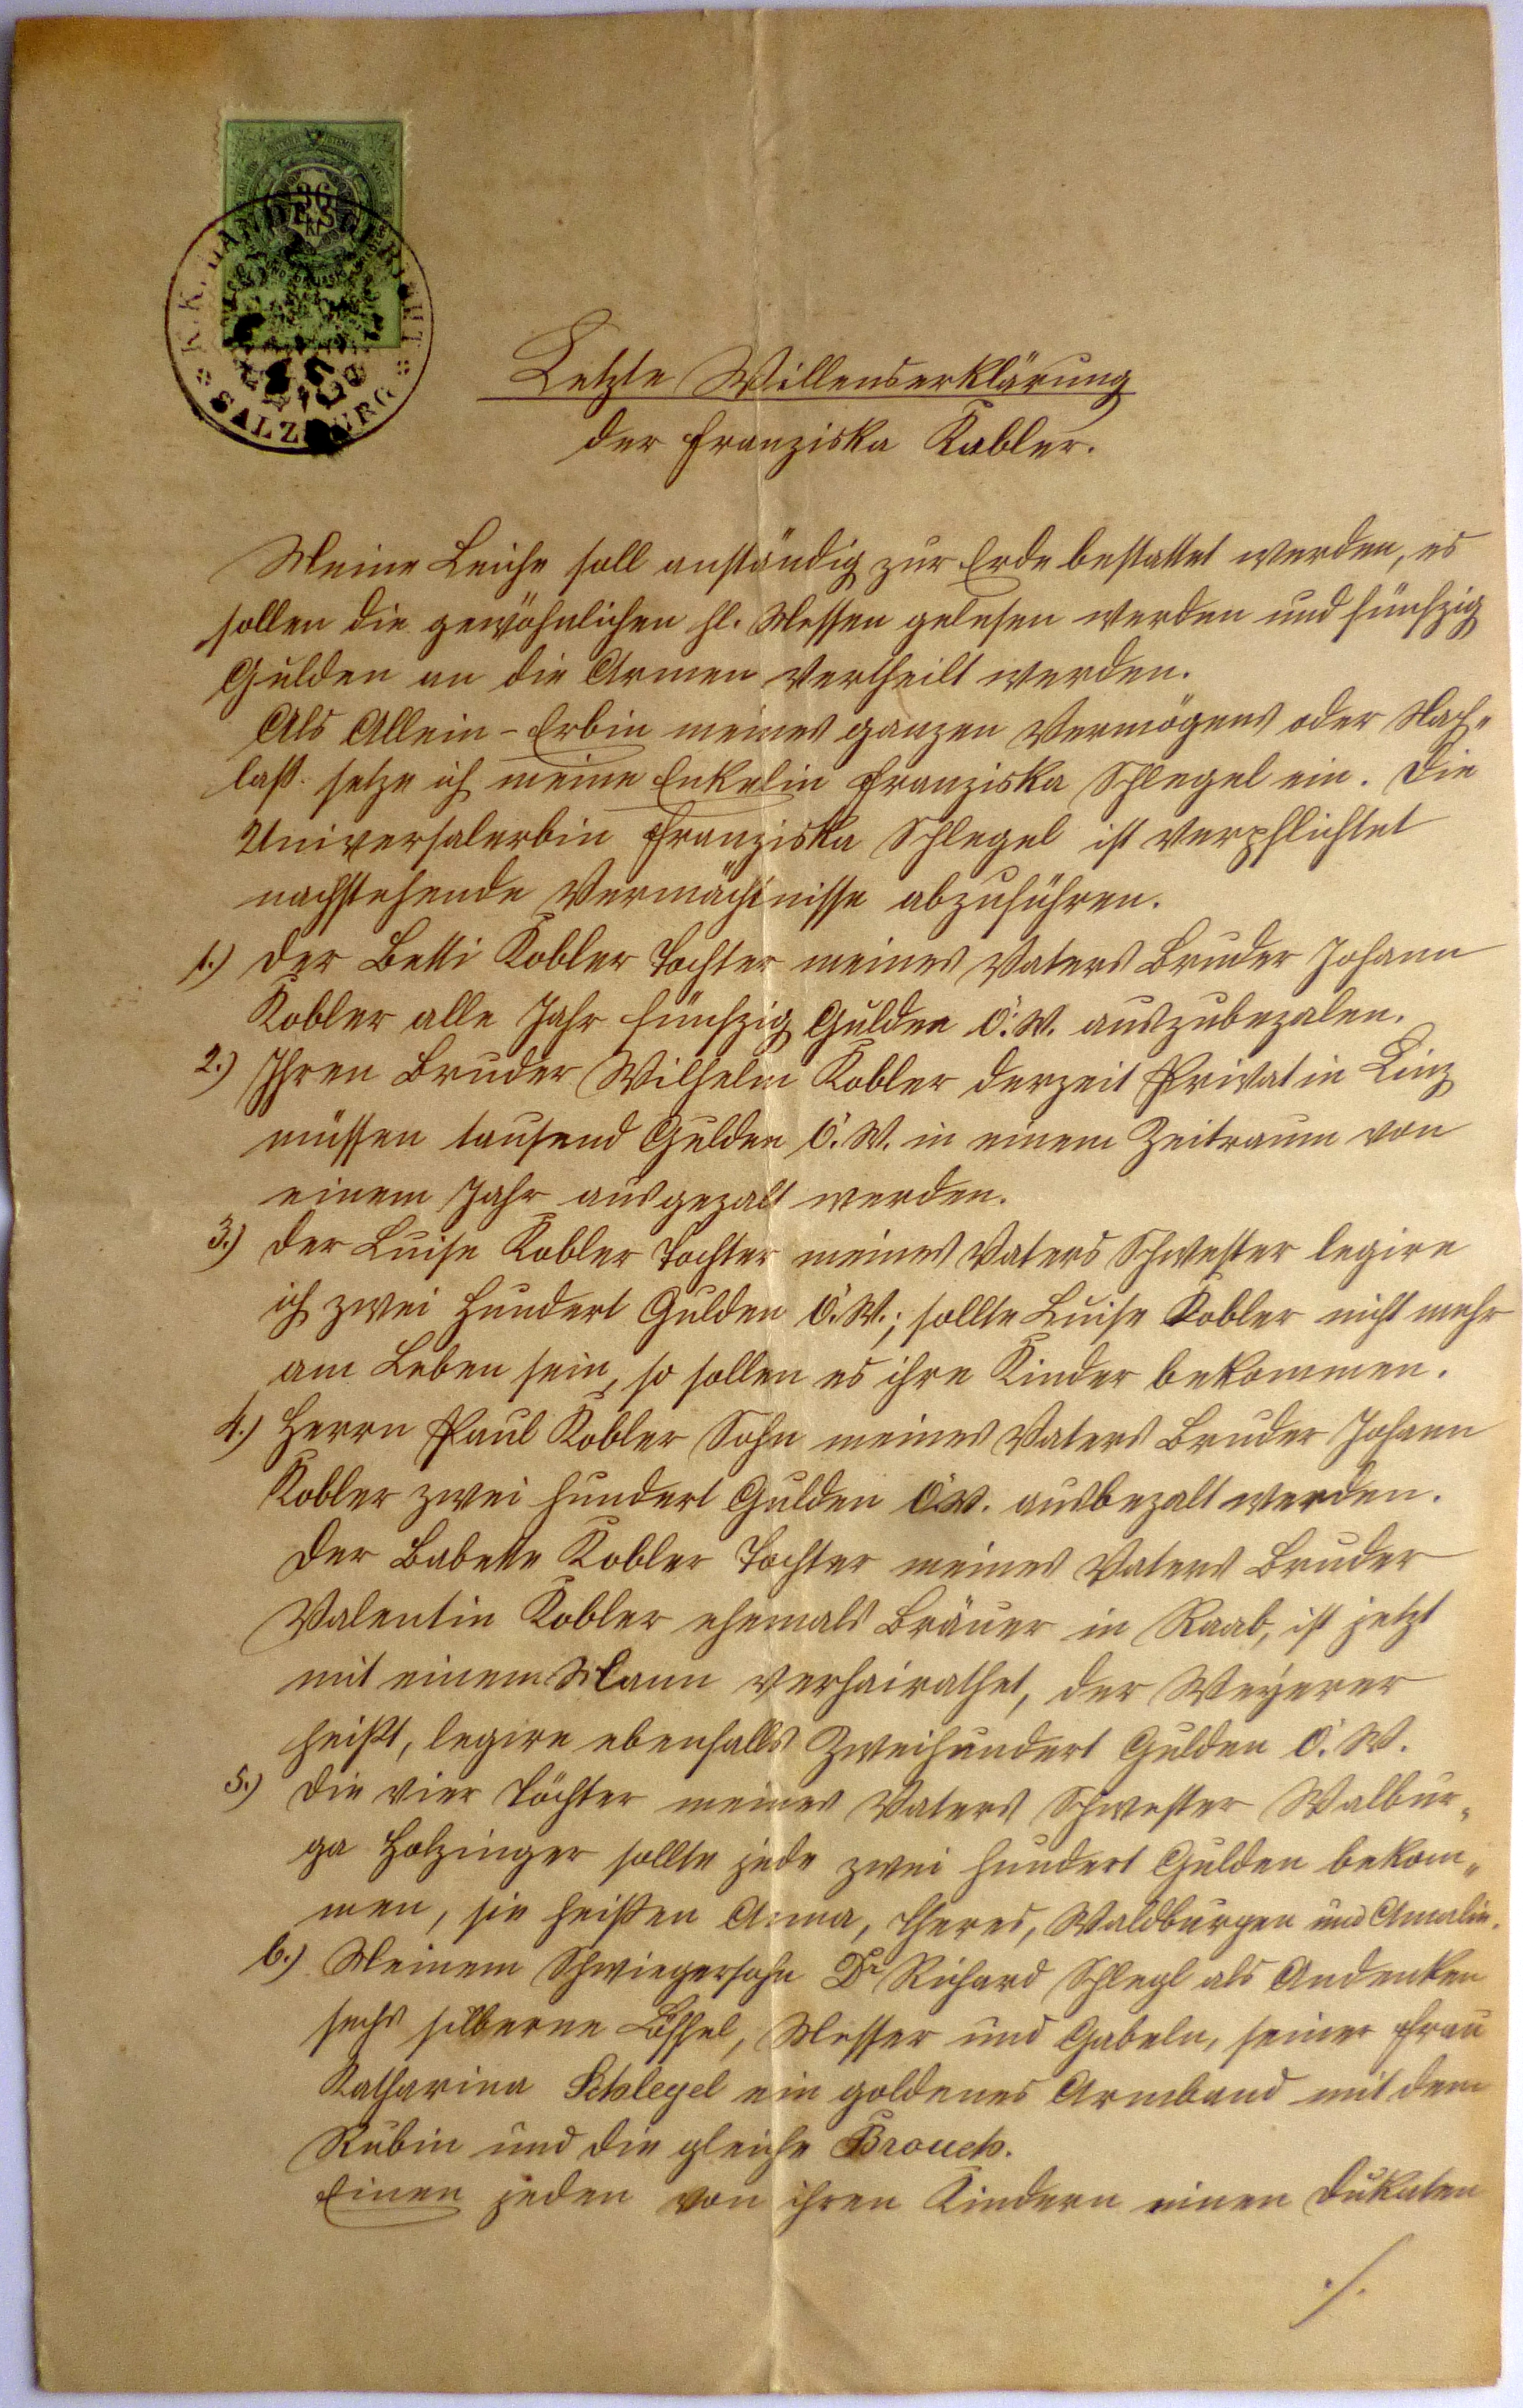 36
Kr
K. K. LANDESGERICHT
SALZBURG
Letzte Willenserklärung
der Franziska Kobler.
Meine Leiche soll anständig zur Erde bestattet werden, es
sollen die gewöhnlichen hl. Messen gelesen werden und fünfzig
Gulden an die Armen vertheilt werden.
Als Allein-Erbin meines ganzen Vermögens oder Nach-
laß setze ich meine Enkelin Franziska Schlegel ein. Die
Universalerbin Franziska Schlegel ist verpflichtet
nachstehende Vermächtnisse abzuführen.
1.) Der Betti Kobler Tochter meines Vaters Bruder Johann
Kobler alle Jahr fünfzig Gulden Ö. W. auszubezalen.
2.) Ihren Bruder Wilhelm Kobler derzeit Privat in Linz
müssen tausend Gulden Ö. W. in einem Zeitraum von
einem Jahr ausgezalt werden.
3.) Der Luise Kobler Tochter meines Vaters Schwester legire
ich zwei hundert Gulden Ö. W.; sollte Luise Kobler nicht mehr
am Leben sein, so sollen es ihre Kinder bekommen.
4.) Herrn Paul Kobler Sohn meines Vaters Bruder Johann
Kobler zwei hundert Gulden Ö. W. ausbezalt werden.
Der Babette Kobler Tochter meines Vaters Bruder
Valentin Kobler ehemals Bräuer in Raab, ist jetzt
mit einem Mann verhairathet, der Weÿerer
heißt, legire ebenfalls Zweihundert Gulden Ö. W.
5.) Die vier Töchter meines Vaters Schwester Walbur-
ga Holzinger sollte jede zwei hundert Gulden bekom-
men, sie heißen Anna, Theres, Waldburgen und Amalie.
6.) Meinem Schwiegersohn Dr Richard Schlegl als Andenken
sechs silberne Löffel, Messer und Gabeln, seiner Frau
Katharina Schlegel ein goldenes Armband mit dem
Rubin und die gleiche Brouch.
Einen jeden von ihren Kindern einen Dukaten
./.